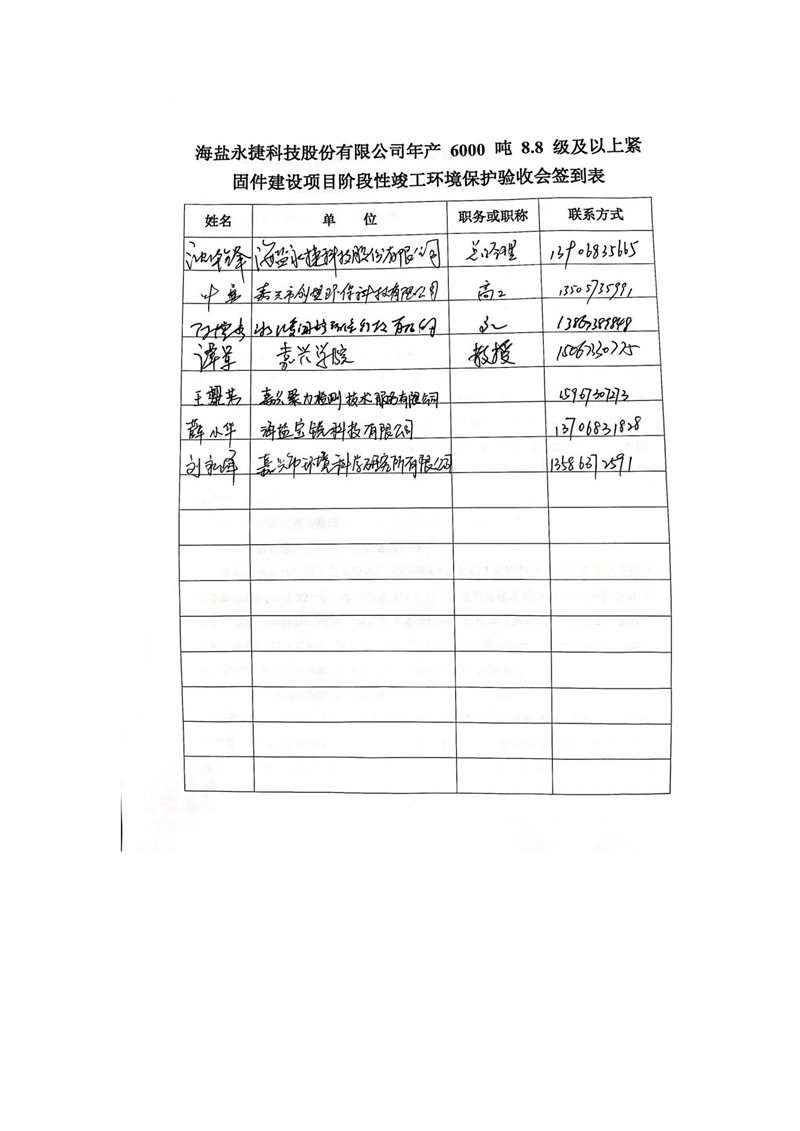 海盐永捷科技股份有限公司年产 6000 吨 8.8 级及以上紧
固件建设项目阶段性竣工环境保护验收会签到表
姓名 单 位 职务或职称 联系方式
海盐永捷科技股份有限公司 总经理 13906835665
嘉兴市创塑环保科技有限公司 高工 13505735991
高工 13867389848
谭军 嘉兴学院 教授 15067330775
嘉兴聚力检测技术服务有限公司 15967307273
薛小华 海盐宝锐科技有限公司 13706831828
嘉兴市环境科学研究所有限公司 13586372591